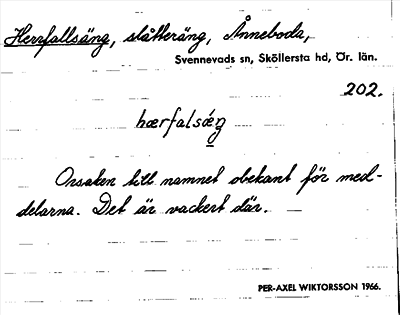 Herrfallsäng, slåtteräng, Ånneboda,
Svennevads sn, Sköllersta hd, Ör. län.
202.
hærfalsæŋ
Orsaken till namnet obekant för med-
delarna. Det är vackert där.
PER-AXEL WIKTORSSON 1966.